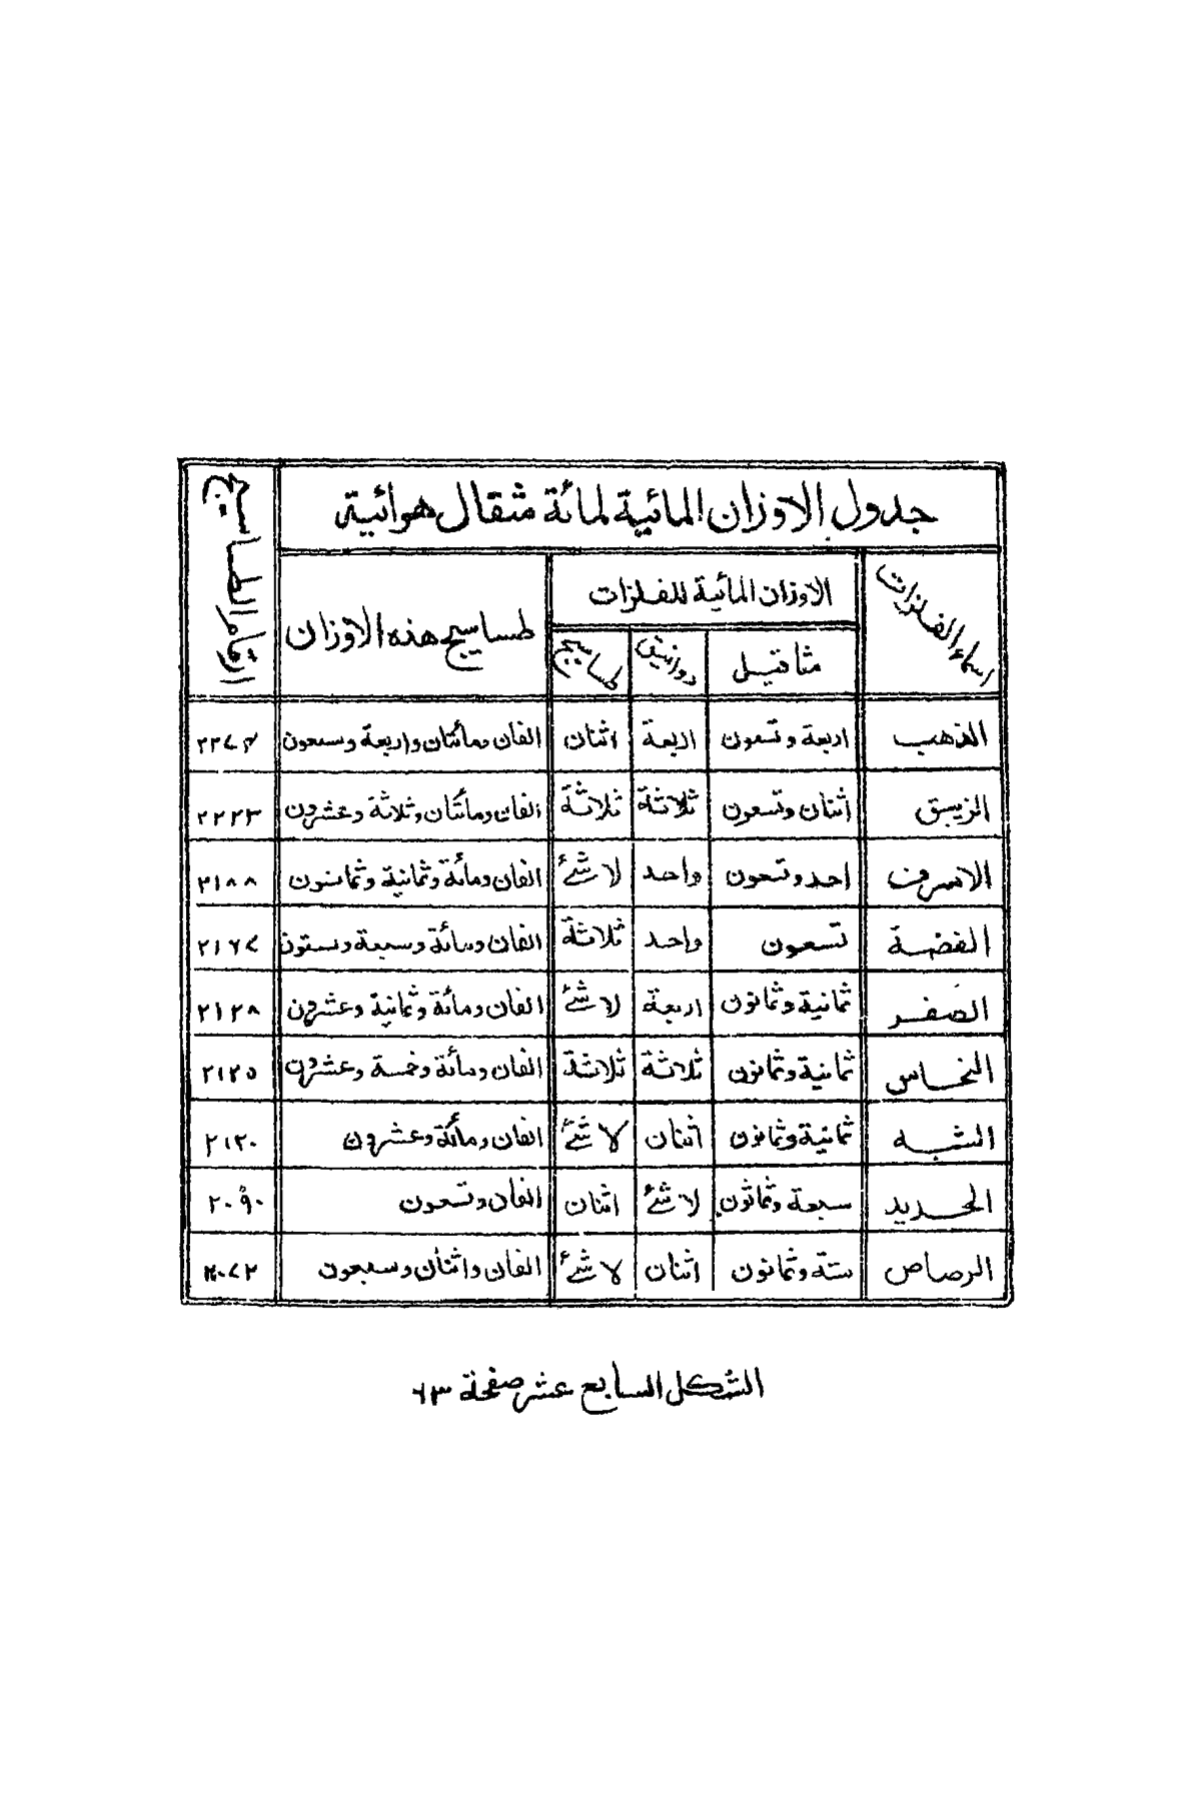 جدول الاوزان المائية لمائة مثقال هوائية
اسماء الفلزات
الاوزان المائية للفلزات
مثاقيل دوانيق طساسيج
طساسيج هذه الاوزان
ارقام الطساسيج
الذهب اربعة وتسعون اربعة اثنان الفان ومائتان واربعة وسبعون ٢٢٧٤
الزيبق اثنان وتسعون ثلاثة ثلاثة الفان ومائتان وثلاثة وعشرون ٢٢٢٣
الاسرف احد وتسعون واحد لا شئ الفان ومائة وثمانية وثمانون ٢١٨٨
الفضة تسعون واحد ثلاثة الفان ومائة وسبعة وستون ٢١٦٧
الصَفر ثمانية وثمانون اربعة لا شئ الفان ومائة وثمانية وعشرون ٢١٢٨
النحاس ثمانية وثمانون ثلاثة ثلاثة الفان ومائة وخمسة وعشرون ٢١٢٥
الشبه ثمانية وثمانون اثنان لا شئ الفان ومائة وعشرون ٢١٢٠
الحديد سبعة وثمانون لا شئ اثنان الفان وتسعون ٢٠٩٠
الرصاص ستة وثمانون اثنان لا شئ الفان واثنان وسبعون ٢٠٧٢
الشكل السابع عشر صفحة ٦٣